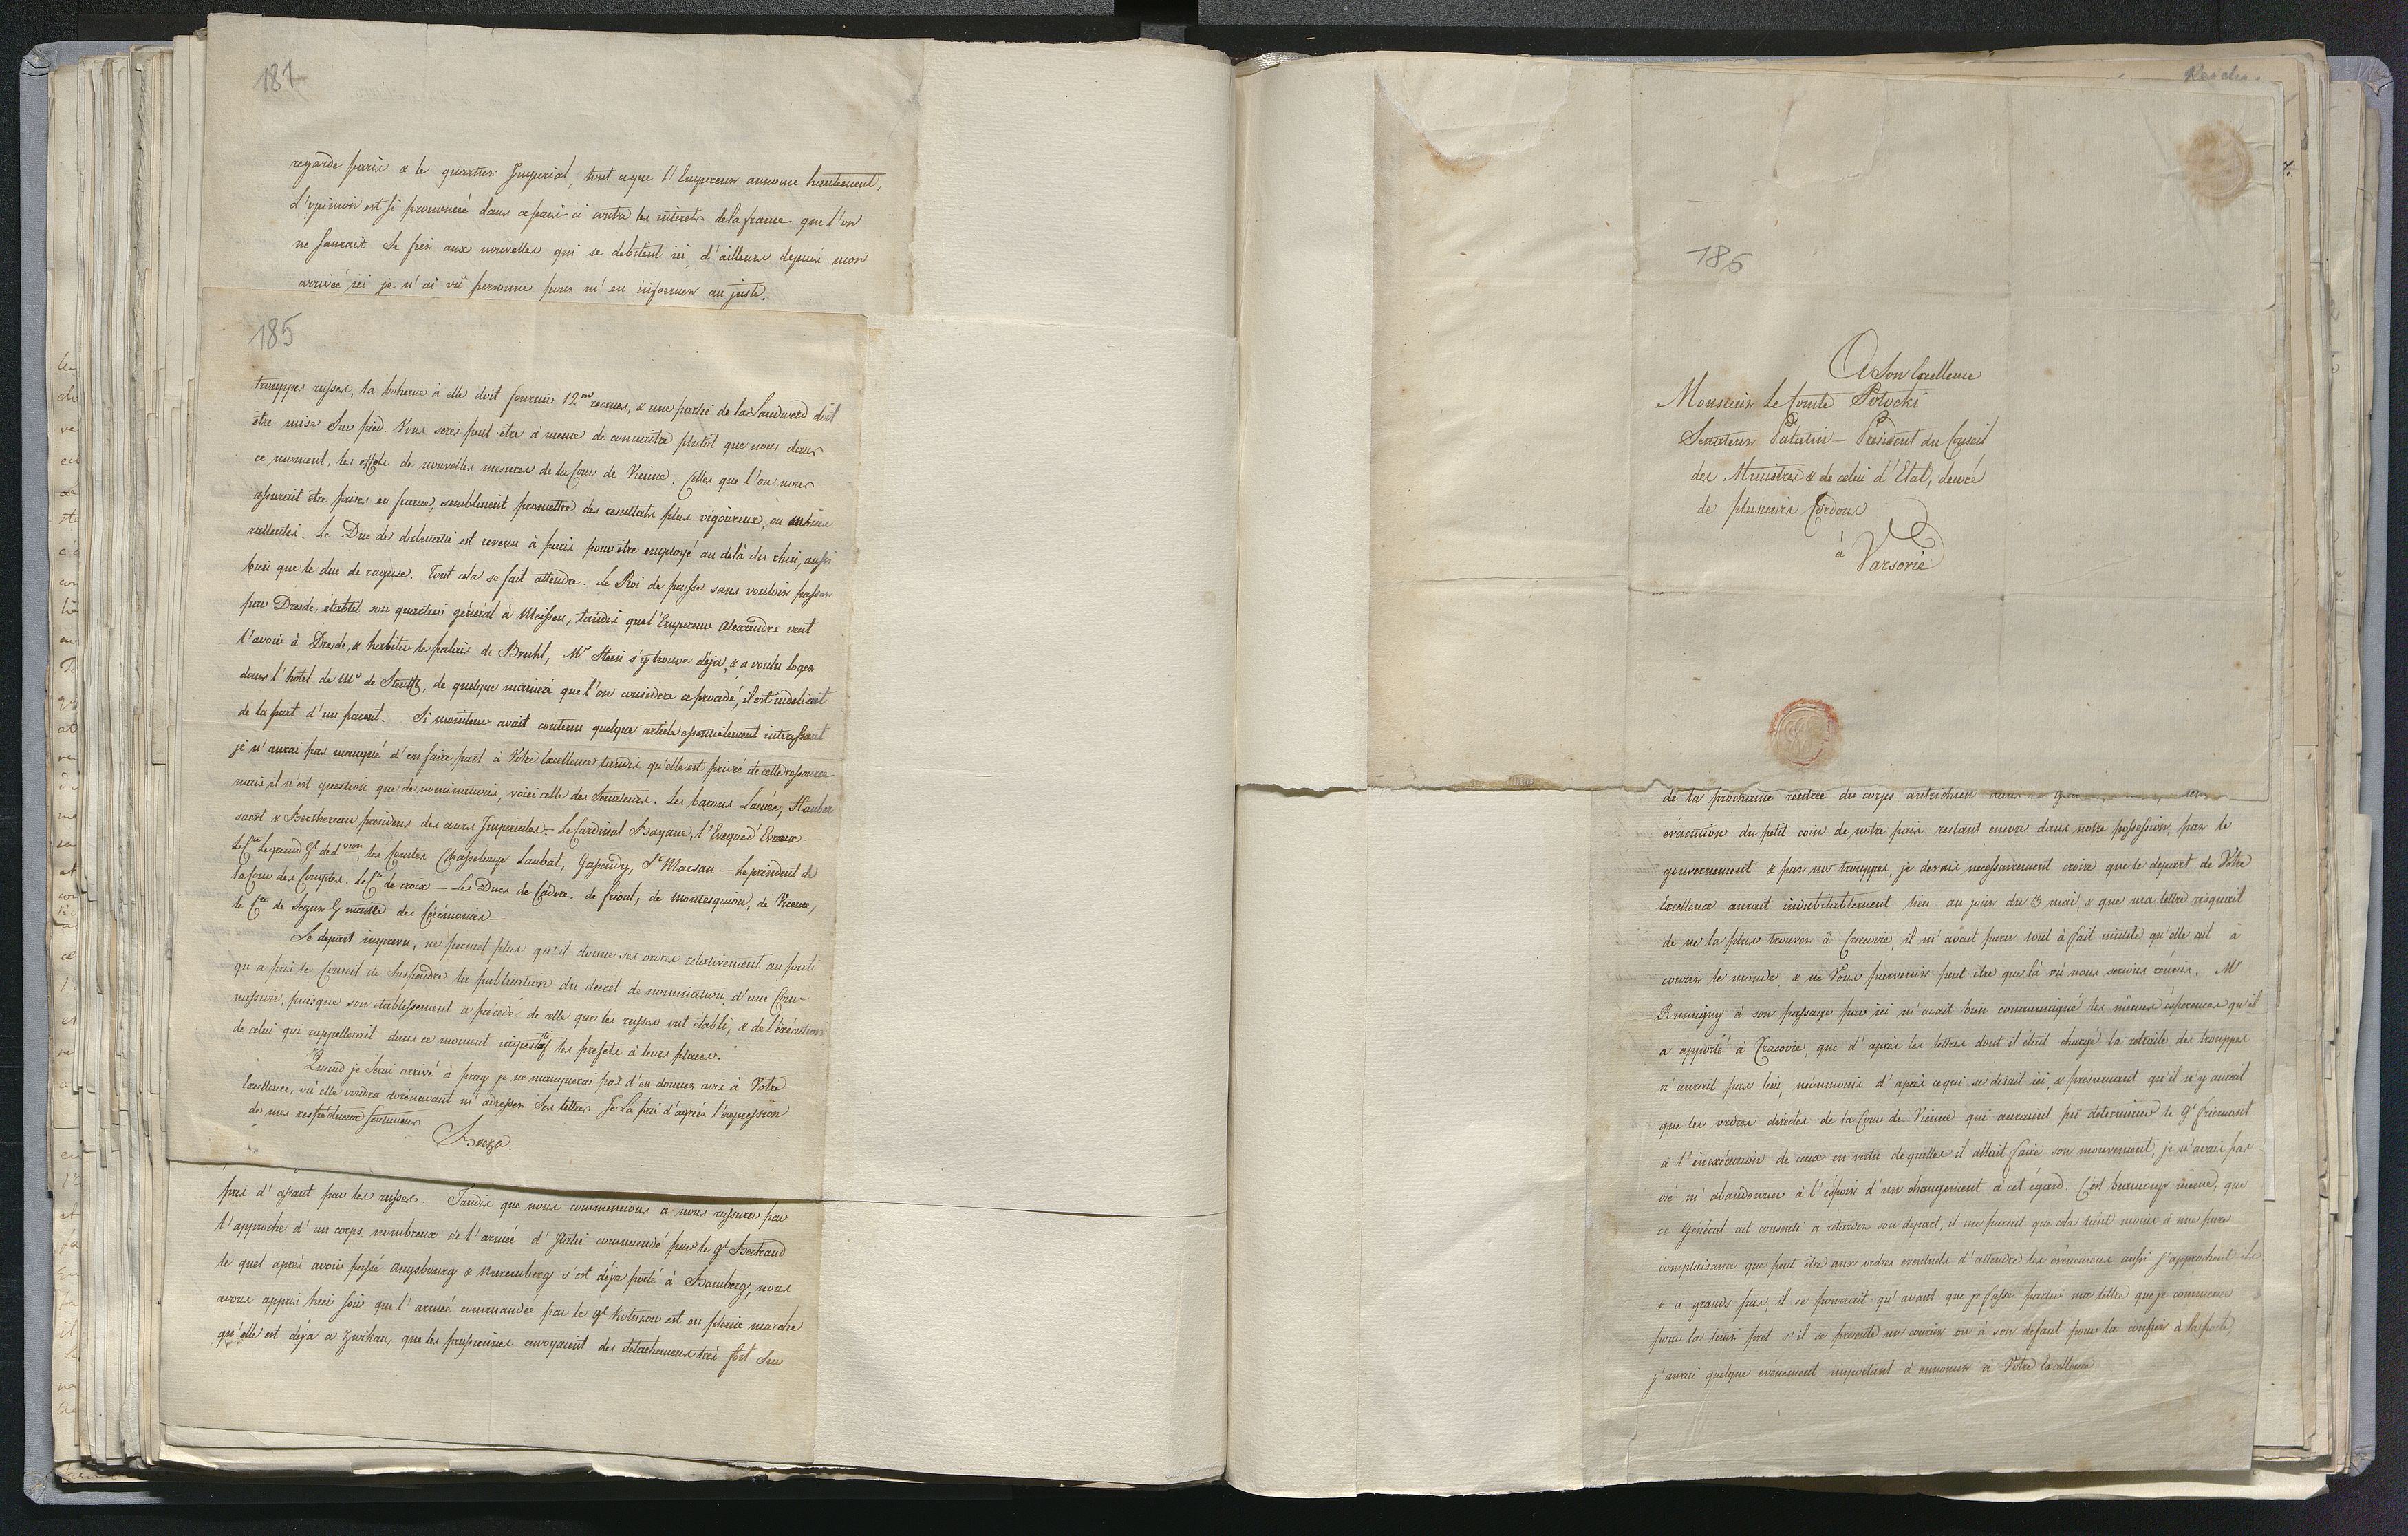 187
regarde paris & le quartier Imperial, tout ce que l'Empereur annonce hautement,
l'opinion est si prononcée dans ce païs-ci contre les interets de la france que l'on
ne saurait se fier aux nouvelles qui se debitent ici, d'ailleurs depuis mon
arrivée ici je n'ai vû personne pour m'en informer au juste.
185
trouppes russes, la boheme à elle doit fournir 12 recrues, & une partie de la Landwerd doit
être mise sur pied. Vous serés peut être à meme de connaitre plutôt que nous dans
ce moment, les effets de nouvelles mesures de la Cour de Vienne. Celles que l'on nous
assurait être prises en france, semblaient promettre des resultats plus vigoureux, ou moins
rallentis. Le Duc de dalmatie est revenu à paris pour être employé au delà du rhin, aussi
bien que le duc de raguse. Tout cela se fait attendre. Le Roi de prusse sans vouloir passer
par Dresde, établit son quartier général à Meissen, tandis que l'Empereur alexandre veut
l'avoir à Dresde, & habiter le palais de Bruhl, Mr Stein s'y trouve déja, & a voulu loger
dans l'hotel de Mr de Senfft, de quelque maniere que l'on considere ce procedé, il est indelicat
de la part d'un parent. Si moniteur avait contenu quelque article essentielement interessant
je n'aurai pas manqué d'en faire part à Votre Excellence tandis qu'elle est privé de cette ressource
mais il n'est question que de nominations, voici celle des Senateurs. Les barons Lanée, Hauber
saert & Berthereau presidens des cours Imperiales. Le Cardinal Bayane, l'Eveque d'Evreux —
Le Cte Legrand Gl de d vion, les Comtes Chasseloup Laubat, Gassendy, St Marsan — Le president de
la Cour des Comptes. Le Cte de croix — Les Ducs de Cadore. de frioul, de Montesquiou, de Vicence,
le Cte de Segur G maitre des Cérémonies —
Le depart imprevu, ne permet plus qu'il donne ses ordres relativement au parti
qu a pris le Conseil de suspendre la publication du decret de nomination d'une Com-
mission, puisque son etablissement a précédé de celle que les russes ont établi, & de l'éxécution
de celui qui rappellerait dans ce moment les prefets à leurs places.
Quand je serai arrivé à prag je ne manquerai pas d'en donner avis à Votre
Excellence, où elle voudra dorénavant m'adresser ses lettres. Je La prie d'agréer l'expression
de mes respectueux sentimens
Breza.
pris d'assaut par les russes. Tandis que nous commencions à nous rassurer par
l'approche d'un corps nombreux de l'armée d'Italie commandé par le gl Bertrand
le quel après avoir passé Augsbourg & Nuremberg s'est déja porté à Bamberg, nous
avons appris hier soir que l'armée commandée par le gl Kutuzow est en pleine marche
qu'elle est déja a Zwikau, que les prussiens envoyaient des détachemens très fort sur
186
A Son Excellence
Monsieur Le Comte Potocki
Senateur Palatin — President du Conseil
des Ministres & de celui d'Etat, decoré
de plusieurs Cordons
à
Varsovie
de la prochaine rentrée du corps autrichien
évacution du petit coin de notre païs restant encore dans notre possession, par le
gouvernement & par nos trouppes, je devais necessairement croire que le depart de Vôtre
Excellence aurait indubitablement lieu au jour du 3 mai, & que ma lettre risquait
de ne la plus trouver à Cracovie, il m'avait paru tout à fait inutile qu'elle ait à
courir le monde, & ne Vous parvenir peut être que là où nous serions réunis. Mr
Rumigny à son passage par ici m'avait bien communiqué les mêmes ésperences qu'il
a apporté à Cracovie, que d'après les lettres dont il était chargé la retraite des trouppes
n'aurait pas lieu, néanmoins d'après ce qui se disait ici, & présumant qu'il n'y aurait
que les ordres directes de la Cour de Vienne qui auraient pû determiner le gl frémont
à l'inexécution de ceux en vertu de quelles il allait faire son mouvement, je n'avais pas
osé m'abandonner à l'éspoir d'un changement à cet égard. C'est beaucoup même, que
ce Général ait consenti a retarder son depart, il me parait que cela tient moins à une pure
complaisance que peut être aux ordres eventuels d'attendre les evenemens aussi s'approchent ils
& a grands pas, il se pourrait qu'avant que je fasse partir ma lettre que je commence
pour la tenir prêt s'il se presente un courier ou à son defaut pour la confier à la poste,
j'aurai quelque evénement important à annoncer à Vôtre Excellence.